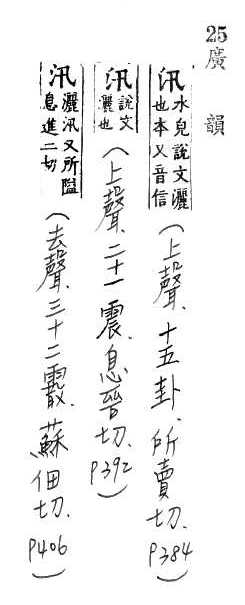 25廣韻
汛水皃說文灑也本又音信(上聲、十五卦、所賣切、P384)
汛說文灑也(上聲、二十一震、息晉切、P392)
汛灑汛又所隘息進二切(去聲、三十二霰、蘇佃切、P406)